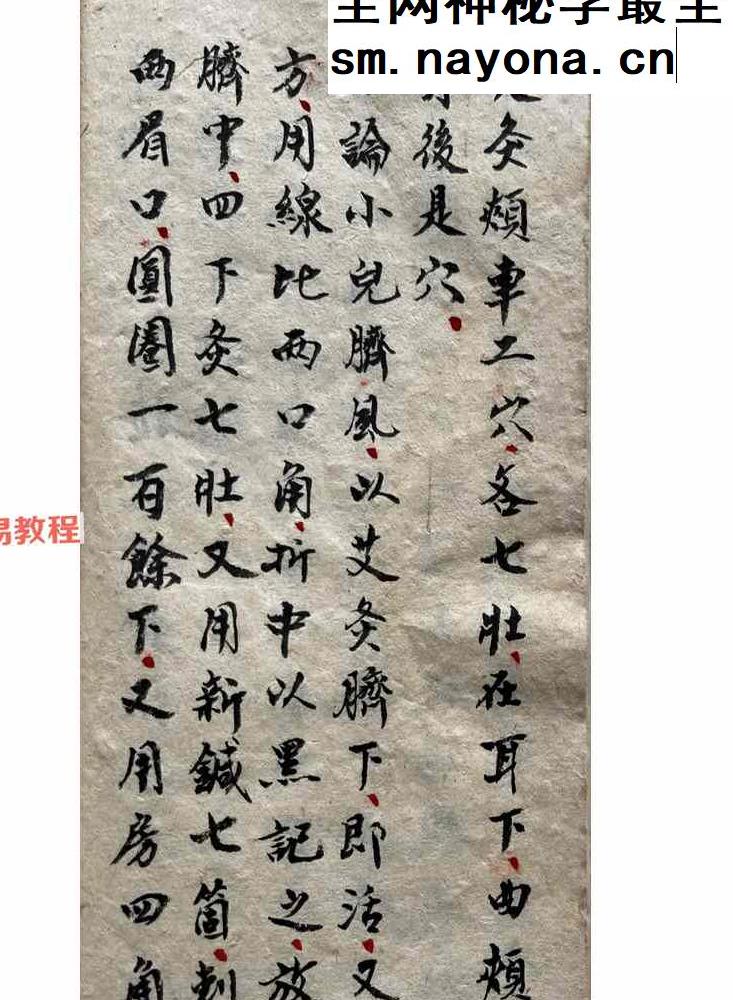 全网神秘学最全
sm.nayona.cn
灸頰車二穴、各七壯、在耳下、曲頰
後是穴、
論小兒臍風、以艾灸臍下、即活、又
方、用線比兩口角、折中以黑記之、放
臍中、四下灸七壯、又用新鍼七箇、刺
兩眉口、圓圈一百餘下、又用房四角
易教程